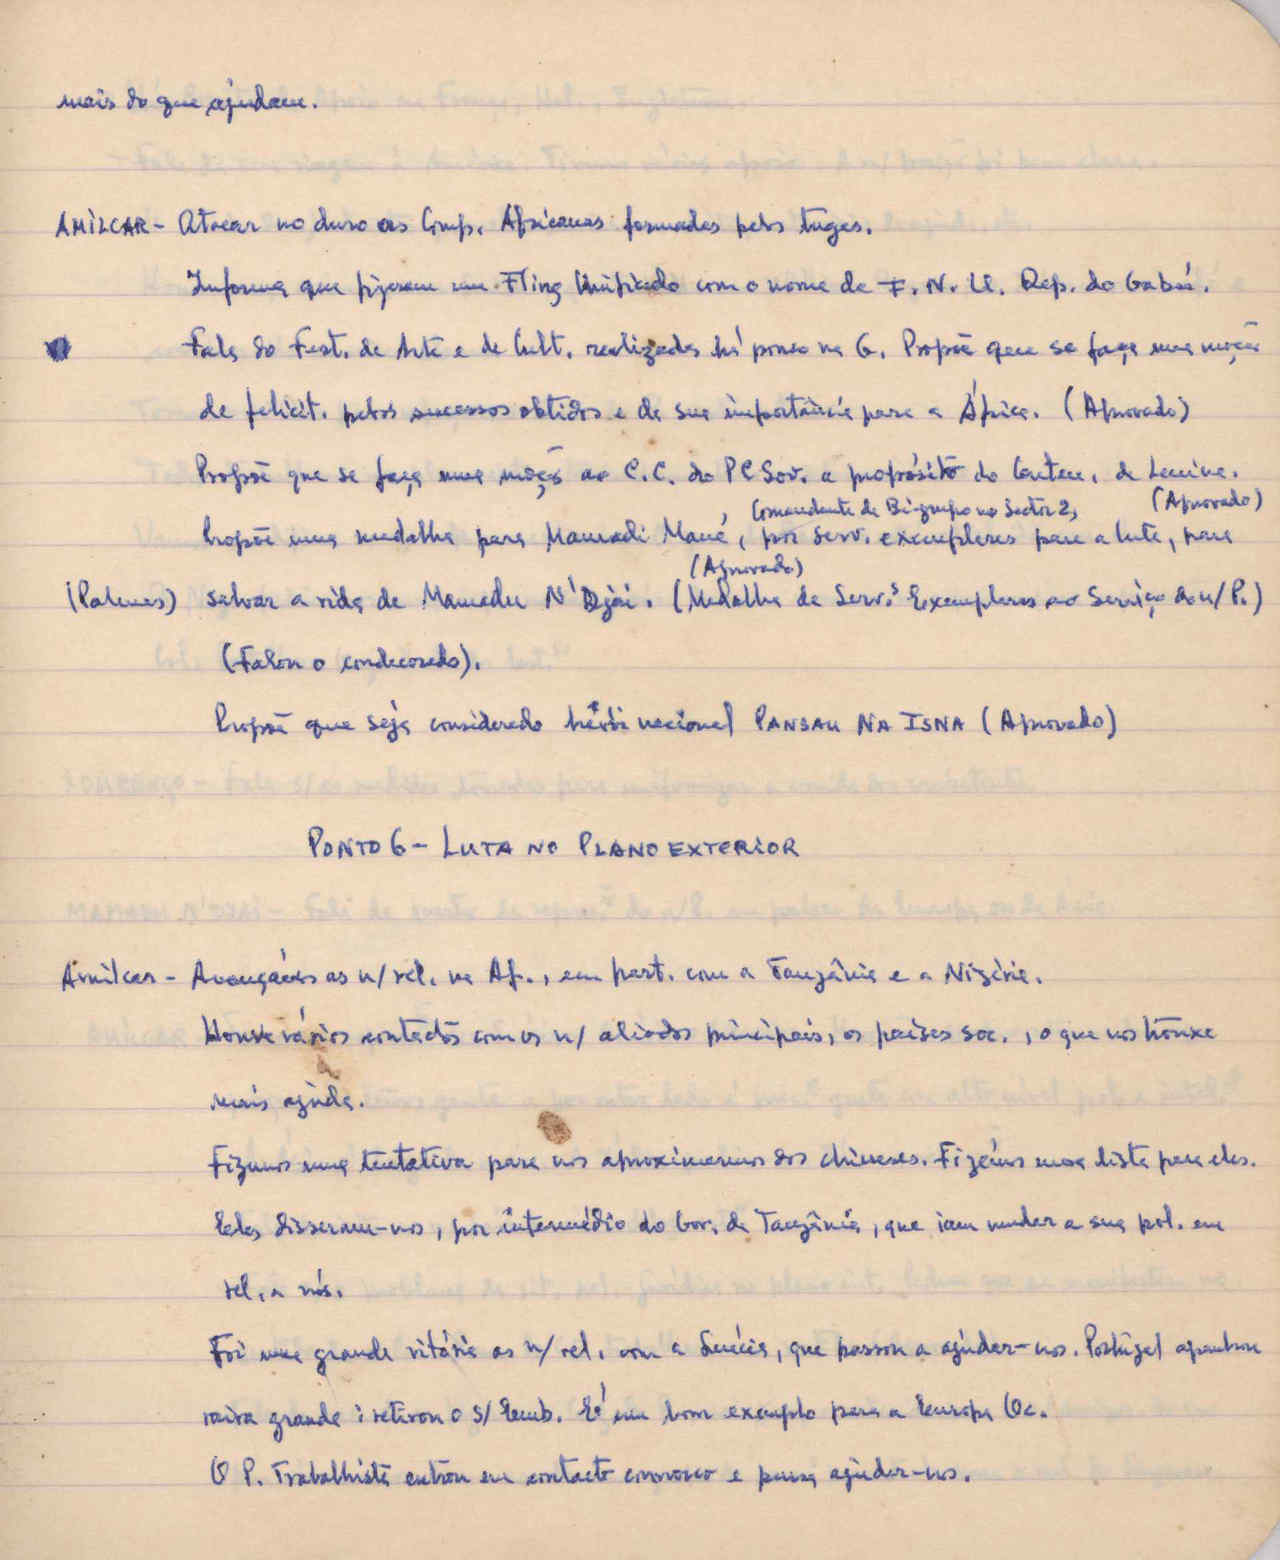 mais do que ajudam.
AMÍLCAR - Atacar no duro as Comp. Africanas formadas pelos tugas.
Informa que fizeram um Fling Unificado com o nome de F. N. U. Rep. do Gabú.
Fala do Fest. de Arte e de Cult. realizada há pouco na G. Propõe que se faça uma moção
de felicit. pelos sucessos obtidos e da sua importância para a África. (Aprovado)
Propõe que se faça uma moção ao C.C. do PC Sov. a propósito do Centen. de Lenine.
(Aprovado)
, Comandante de Bi-grupo no Sector 2,
Propõe uma medalha para Mamadi Mané, por serv. exemplares para a luta, para
(Aprovado)
(Palmas) salvar a vida de Mamadu N'Djai. (Medalha de Serv.s Exemplares ao Serviço do n/ P.)
(Falou o condecorado).
Propõe que seja considerado herói nacional PANSAU NA ISNA (Aprovado)
PONTO 6 - LUTA NO PLANO EXTERIOR
Amílcar - Avançámos as n/ rel. na Af., em part. com a Tanzânia e a Nigéria.
Houve vários contactos com os n/ aliados principais, os países soc., o que nos trouxe
mais ajuda.
Fizemos uma tentativa para nos aproximarmos dos chineses. Fizémos uma lista para eles.
Eles disseram-nos, por intermédio do Gov. da Tanzânia, que iam mudar a sua pol. em
rel. a nós.
Foi uma grande vitória as n/ rel. com a Suécia, que passou a ajudar-nos. Portugal apanhou
raiva grande i retirou o s/ Emb. É um bom exemplo para a Europa Oc.
O P. Trabalhista entrou em contacto connosco e pensa ajudar-nos.